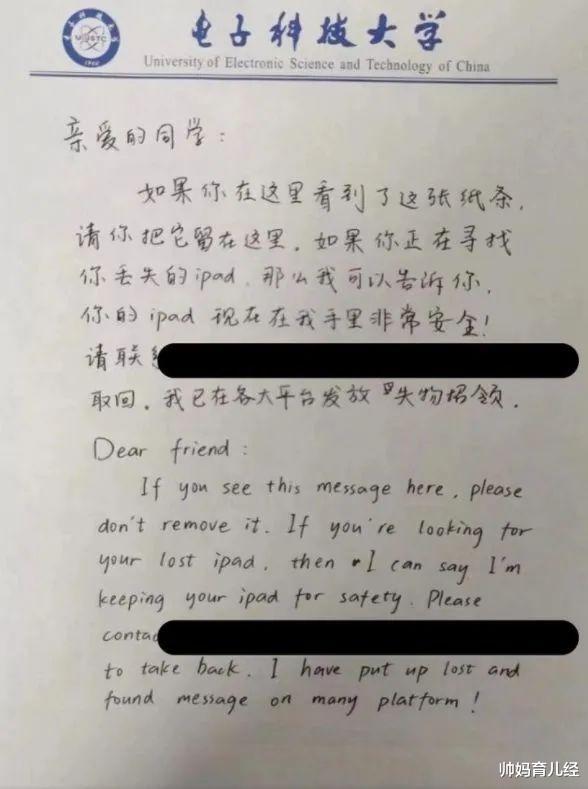 电子科技大学
University of Electronic Science and Technology of China
亲爱的同学：
如果你在这里看到了这张纸条，
请你把它留在这里。如果你正在寻找
你丢失的ipad，那么我可以告诉你，
你的ipad 现在在我手里非常安全！
请联
取回。我已在各大平台发放失物招领．
Dear friend：
If you see this message here, please
don't remove it. If you're looking for
your lost ipad, then I can say I'm
keeping your ipad for safety. Please
contac
to take back. I have put up lost and
found message on many platform!
帅妈育儿经